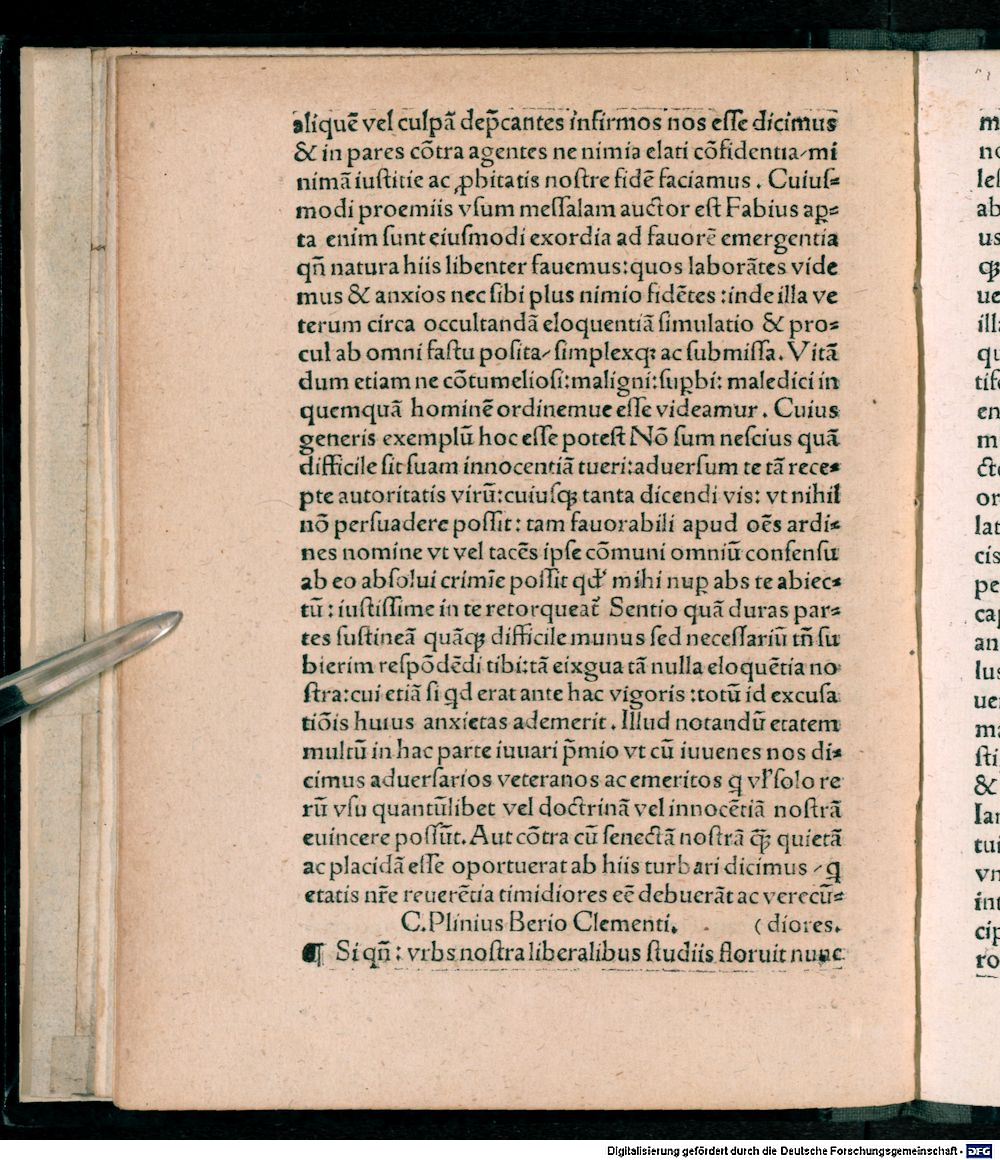 aliquē vel culpā dep̄cantes infirmos nos eſſe dicimus
& in pares cōtra agentes ne nimia elati cōfidentia/mi
nimā iuſtitie ac ꝓbitatis noſtre fidē faciamus . Cuiuſ⸗
modi proemiis vſum meſſalam auctor eſt Fabius aꝑ⸗
ta enim ſunt eiuſmodi exordia ad fauorē emergentia
qn̄ natura hiis libenter fauemus:quos laborātes vide
mus & anxios nec ſibi plus nimio fidētes :inde illa ve
terum circa occultandā eloquentiā ſimulatio & pro⸗
cul ab omni faſtu poſita/ ſimplexqꝫ ac ſubmiſſa. Vitā
dum etiam ne cōtumelioſi:maligni:ſuꝑbi: maledici in
quemquā hominē ordinemue eſſe videamur . Cuius
generis exemplū hoc eſſe poteſt Nō ſum neſcius quā
difficile ſit ſuam innocentiā tueri:aduerſum te tā rece⸗
pte autoritatis virū:cuiuſqꝫ tanta dicendi vis: vt nihil
nō perſuadere poſſit: tam fauorabili apud oēs ardi⸗
nes nomine vt vel tacēs ipſe cōmuni omniū conſenſu
ab eo abſolui crimīe poſſit qd' mihi nuꝑ abs te abiec⸗
tū : iuſtiſſime in te retorqueat̄ Sentio quā duras par⸗
tes ſuſtineā quāqꝫ difficile munus ſed neceſſariū tn̄ ſu
bierim reſpōdēdi tibi:tā eixgua tā nulla eloquētia no
ſtra:cui etiā ſi qd erat ante hac vigoris :totū id excuſa
tiōis huius anxietas ademerit . Illud notandū etatem
multū in hac parte iuuari p̄mio vt cū iuuenes nos di⸗
cimus aduerſarios veteranos ac emeritos q vł ſolo re
rū vſu quantūlibet vel doctrinā vel innocētiā noſtrā
euincere poſſūt. Aut cōtra cū ſenectā noſtrā q̄ꝫ quietā
ac placidā eſſe oportuerat ab hiis turbari dicimus / q
etatis nr̄e reuerētia timidiores eē debuerāt ac verecū⸗
C. Plinius Berio Clementi. ( diores.
¶ Si qn̄ : vrbs noſtra liberalibus ſtudiis floruit nunc
Digitalisierung gefördert durch die Deutsche Forschungsgemeinschaft - DFG